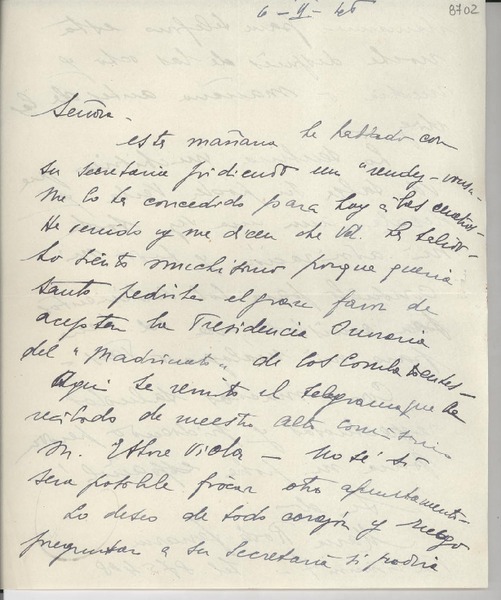 6-II-46
8702
Señora -
esta mañana he hablado con
su secretaria pidiendo un "rendy-vous" -
Me lo ha concedido para hoy a las cuatro -
He venido y me dicen che Vd. ha salido -
Lo siento muchisimo porque queria
tanto pedirle el gran favor de
aceptar la Presidencia Onoraria
del "Madrinato" de los Combatientes -
Aqui le remito el telegrama que he
recibido de nuestro alto comisario
M. Ettore Viola - no sé si
sera posible fixar otro apuntamento -
Lo deseo de todo corazón y ruego
preguntar a su Secretaria si podria